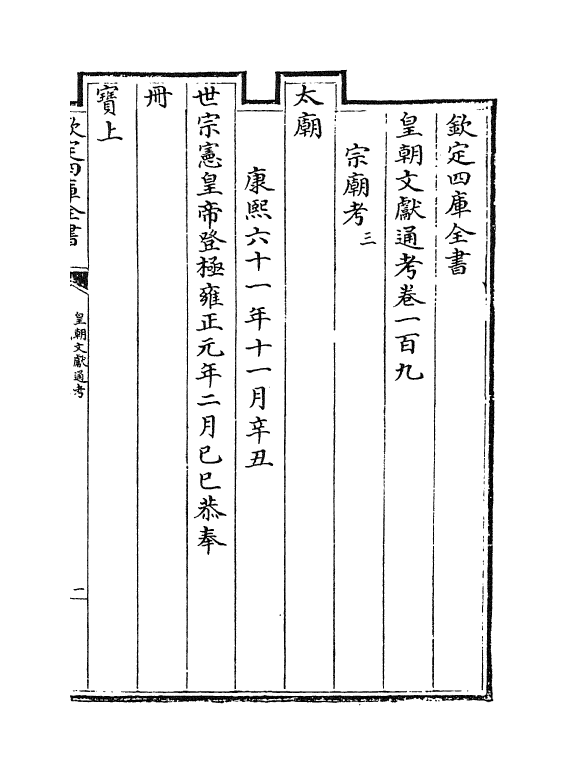 欽定四庫全書
皇朝文獻通考卷一百九
宗廟考三
太廟
康熙六十一年十一月辛丑
世宗憲皇帝登極雍正元年二月己巳恭奉
冊
寶上
欽定四庫全書
皇朝文獻通考